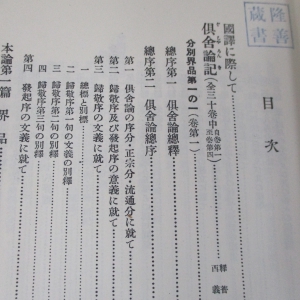 隆善
蔵書
目次
國譯に際して
俱舍論記(全三十卷中自卷第一至卷第四)
釋義
西義
分別界品第一の一(卷第一)
總序第一 俱舍論總釋
總序第二 俱舍論總序
第一 俱舍論の序分・正宗分・流通分に就て
第二 歸敬序及び發起序の意義に就て
第三 歸敬序の文義に就て
一 總標と別標
二 歸敬序第一句の文義の別釋
三 歸敬序第二句の別釋
四 歸敬序第三句の別釋
第四 發起序の文義に就て
本論第一篇 界品